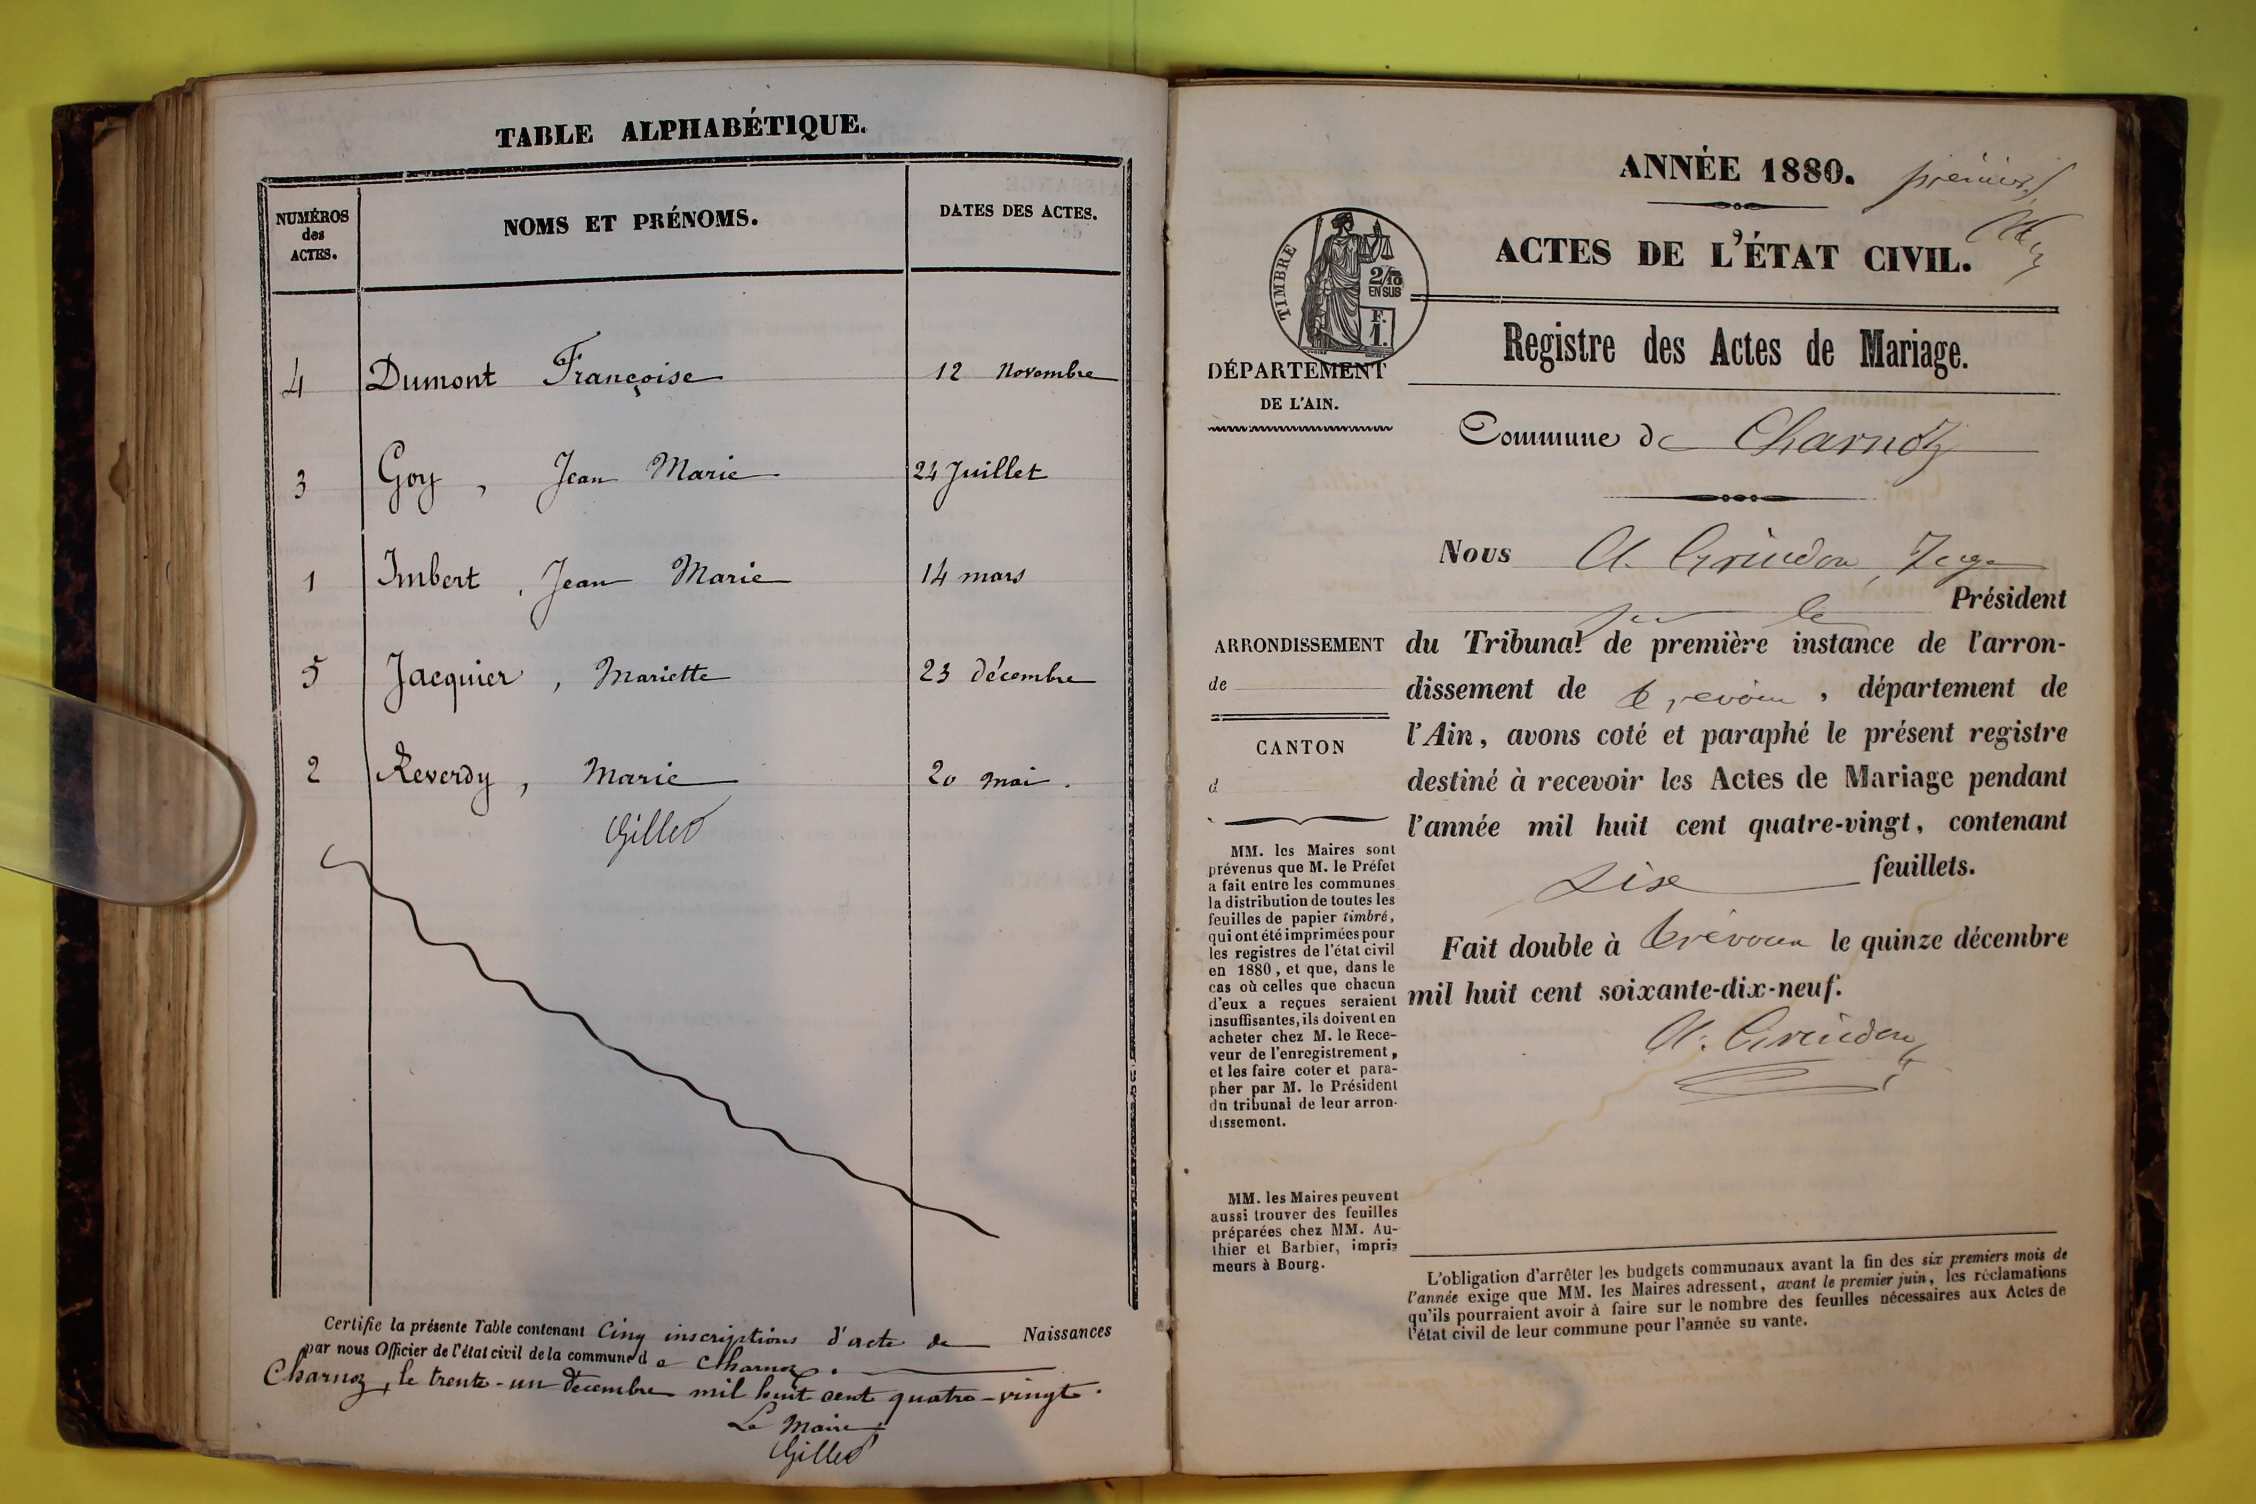 TABLE ALPHABÉTIQUE.
NUMÉROS
des
ACTES.
NOMS ET PRÉNOMS.
DATES DES ACTES.
4 Dumont Françoise 12 Novembre
3 Goy, Jean Marie 24 Juillet
1 Imbert, Jean Marie 14 mars
5 Jacquier, Mariette 23 décembre
2 Reverdy, Marie 20 mai.
Gillet
Certifie la présente Table contenant Cinq inscriptions d'acte de Naissances
par nous Officier de l'état civil de la commune d e Charnoz.
Charnoz, le trente-un Décembre mil huit cent quatre-vingt.
Le Maire
Gillet
ANNÉE 1880.
premier
ACTES DE L'ÉTAT CIVIL.
TIMBRE
2/10
EN SUS
F.
1.
Registre des Actes de Mariage.
DÉPARTEMENT
DE L'AIN.
Commune de Charnoz
Nous A. Grindon, Juge
pr le Président
du Tribunal de première instance de l'arron-
dissement de Trévoux, département de
l'Ain, avons coté et paraphé le présent registre
destiné à recevoir les Actes de Mariage pendant
l'année mil huit cent quatre-vingt, contenant
six feuillets.
Fait double à Trévoux le quinze décembre
mil huit cent soixante-dix-neuf.
A. Grindon
ARRONDISSEMENT
de
CANTON
d
MM. les Maires sont
prévenus que M. le Préfet
a fait entre les communes
la distribution de toutes les
feuilles de papier timbré,
qui ont été imprimées pour
les registres de l'état civil
en 1880, et que, dans le
cas où celles que chacun
d'eux a reçues seraient
insuffisantes, ils doivent en
acheter chez M. le Rece-
veur de l'enregistrement,
et les faire coter et para-
pher par M. le Président
du tribunal de leur arron-
dissement.
MM. les Maires peuvent
aussi trouver des feuilles
préparées chez MM. Au-
thier et Barbier, impri-
meurs à Bourg.
L'obligation d'arrêter les budgets communaux avant la fin des six premiers mois de
l'année exige que MM. les Maires adressent, avant le premier juin, les réclamations
qu'ils pourraient avoir à faire sur le nombre des feuilles nécessaires aux Actes de
l'état civil de leur commune pour l'année su vante.